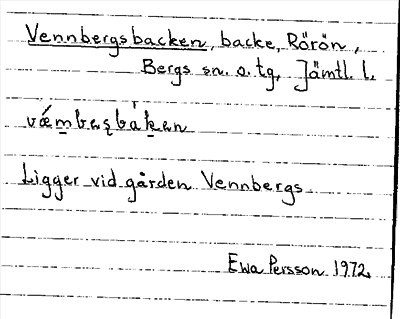 Vennbergsbacken, backe, Rörön,
Bergs sn. o. tg, Jämtl. l.
Ligger vid gården Vennbergs.
Ewa Persson 1972.